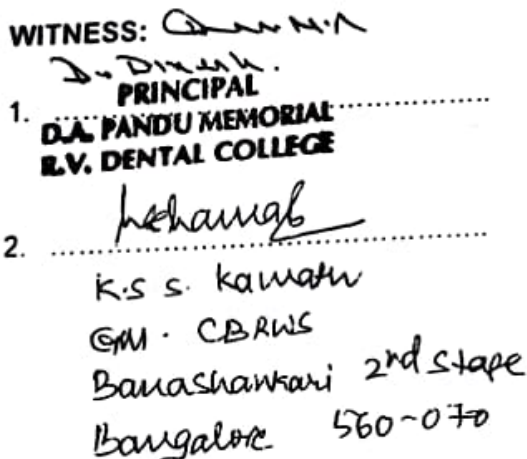 WITNESS: M.A
Dr. Dinesh.
PRINCIPAL
1. ..............................
D.A. PANDU MEMORIAL
R.V. DENTAL COLLEGE
2. ..............................
K.S S. Kamath
GM. CBRWS
Banashankari 2nd Stage
Bangalore 560-070